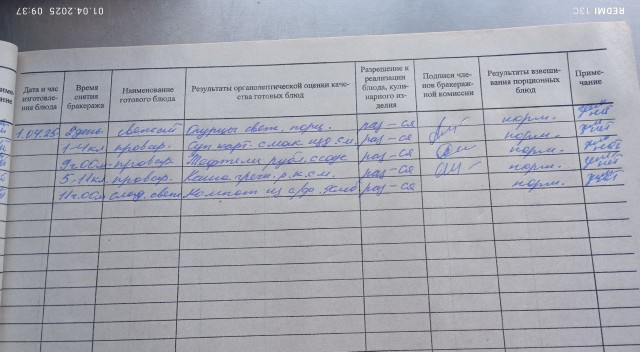 REDMI 13C
01.04.2025 09:37
Дата и час изготовления блюда
Время снятия бракеража
Наименование готового блюда
Результаты органолептической оценки качества готовых блюд
Разрешение к реализации блюда, кулинарного изделия
Подписи членов бракеражной комиссии
Результаты взвешивания порционных блюд
Примечание
1.04.25 2 день свежий Огурцы свеж. порц. раз-ся норм.
1-4кл провар. Суп карт. с мак изд см. раз-ся норм.
9ч.00м провар. Тефтели рубл. соус раз-ся норм.
5-11кл провар. Каша греч. р.к.см. раз-ся норм.
11ч.00м слад. свеж Компот из с/ф раз-ся норм.